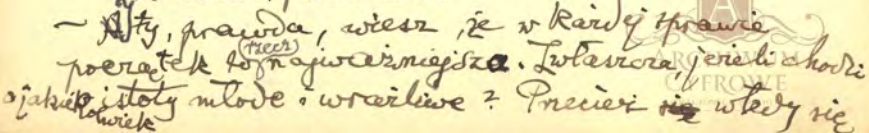 — A ty, prawda, wiesz, że w każdej sprawie
początek to rzecz najważniejsza. Zwłaszcza, jeżeli chodzi
o jakiekolwiek istoty młode i wrażliwe? Przecież się wtedy się
ARCHIWUM
CYFROWE